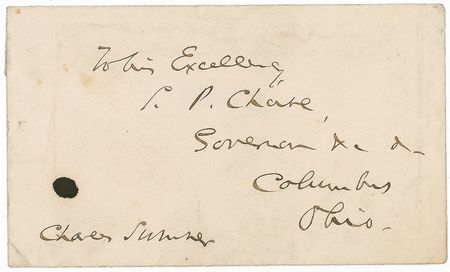 To his Excellency
S. P. Chase,
Governor &c &c
Columbus
Ohio.
Charles Sumner